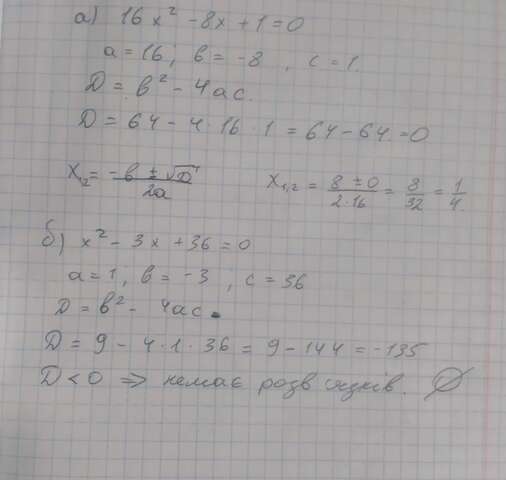 а) 16x² - 8x + 1 = 0
a = 16; b = -8, c = 1.
D = b² - 4ac.
D = 64 - 4·16·1 = 64 - 64 = 0
x₁,₂ = (-b ± √D)/2a x₁,₂ = (8 ± 0)/(2·16) = 8/32 = 1/4.
б) x² - 3x + 36 = 0
a = 1, b = -3, c = 36
D = b² - 4ac.
D = 9 - 4·1·36 = 9 - 144 = -135
D < 0 ⇒ немає розв'язків. ∅